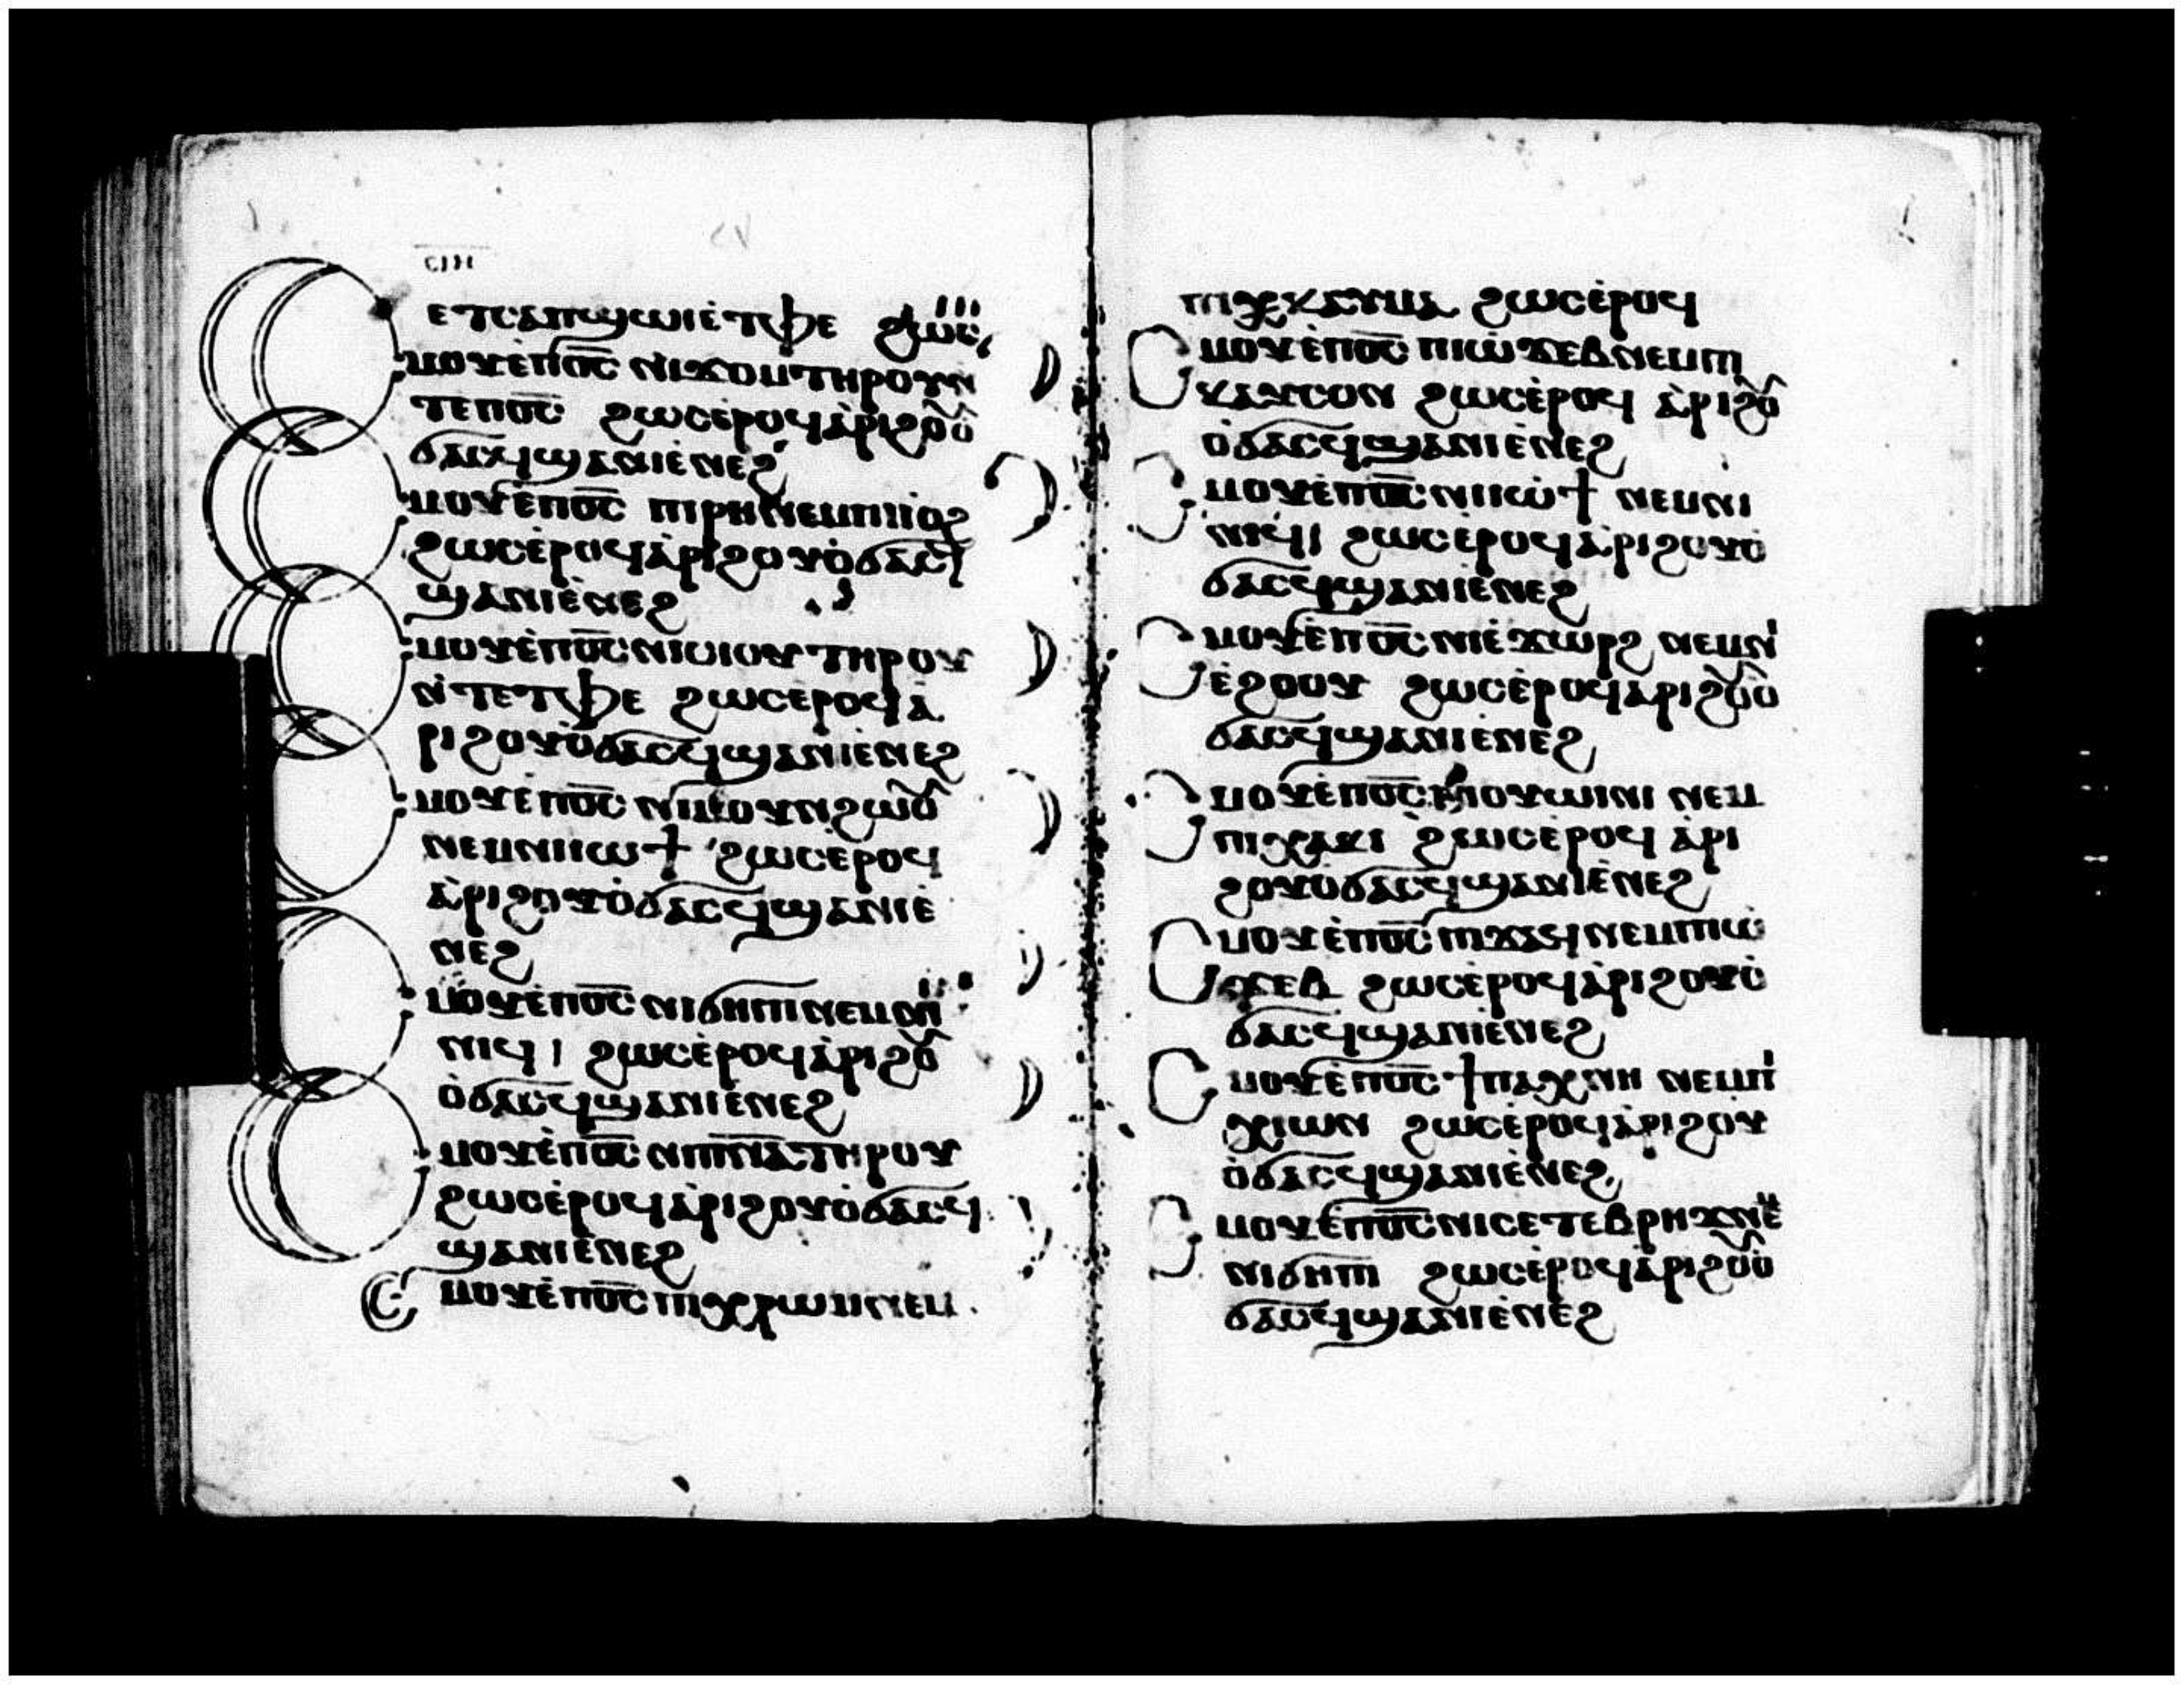 ⲉⲧⲥⲁⲡϣⲱⲓⲉ̀ⲧⲫⲉ ϩⲱⲥ
ⲥⲙⲟⲩⲉ̀ⲡⲟ̅ⲥ̅ ⲛⲓϫⲟⲙⲧⲏⲣⲟⲩⲛ
ⲧⲉⲡⲟ̅ⲥ̅ ϩⲱⲥⲉ̀ⲣⲟϥⲁ̀ⲣⲓϩⲟⲩⲟ̀
ϭⲁⲥϥϣⲁⲛⲓⲉ̀ⲛⲉϩ
ⲥⲙⲟⲩⲉ̀ⲡⲟ̅ⲥ̅ ⲡⲓⲣⲏⲛⲉⲙⲡⲓⲓⲟϩ
ϩⲱⲥⲉ̀ⲣⲟϥⲁ̀ⲣⲓϩⲟⲩⲟ̀ϭⲁⲥϥ
ϣⲁⲛⲓⲉ̀ⲛⲉϩ
ⲥⲙⲟⲩⲉ̀ⲡⲟ̅ⲥ̅ⲛⲓⲥⲓⲟⲩ ⲧⲏⲣⲟⲩ
ⲛ̀ⲧⲉⲧⲫⲉ ϩⲱⲥⲉ̀ⲣⲟϥⲁ̀
ⲣⲓϩⲟⲩⲟ̀ϭⲁⲥϥϣⲁⲛⲓⲉ̀ⲛⲉϩ
ⲥⲙⲟⲩⲉ̀ⲡⲟ̅ⲥ̅ ⲛⲓⲙⲟⲩⲛϩⲱⲟⲩ
ⲛⲉⲙⲛⲓⲓⲱϯ ϩⲱⲥⲉ̀ⲣⲟϥ
ⲁ̀ⲣⲓϩⲟⲩⲟ̀ϭⲁⲥϥϣⲁⲛⲓⲉ̀
ⲛⲉϩ
ⲥⲙⲟⲩⲉ̀ⲡⲟ̅ⲥ̅ ⲛⲓϭⲏⲡⲓⲛⲉⲙⲛⲓ
ⲛⲓϥⲓ ϩⲱⲥⲉ̀ⲣⲟϥⲁ̀ⲣⲓϩⲟⲩ
ⲟ̀ϭⲁⲥϥϣⲁⲛⲓⲉ̀ⲛⲉϩ
ⲥⲙⲟⲩⲉ̀ⲡⲟ̅ⲥ̅ ⲛⲓⲡ̅ⲛ̅ⲁ̅ⲧⲏⲣⲟⲩ
ϩⲱⲥⲉ̀ⲣⲟϥⲁ̀ⲣⲓϩⲟⲩⲟ̀ϭⲁⲥϥ
ϣⲁⲛⲓⲉ̀ⲛⲉϩ
ⲥⲙⲟⲩⲉ̀ⲡⲟ̅ⲥ̅ ⲡⲓⲭⲣⲱⲙⲛⲉⲙ
ⲡⲓⲭⲕⲁⲩⲙⲁ ϩⲱⲥⲉ̀ⲣⲟϥ
ⲥⲙⲟⲩⲉ̀ⲡⲟ̅ⲥ̅ ⲡⲓⲱ̀ϫⲉⲃⲛⲉⲙⲡⲓ
ⲕⲁⲩⲥⲟⲛ ϩⲱⲥⲉ̀ⲣⲟϥ ⲁ̀ⲣⲓϩⲟⲩ
ⲟ̀ϭⲁⲥϥϣⲁⲛⲓⲉ̀ⲛⲉϩ
ⲥⲙⲟⲩⲉ̀ⲡⲟ̅ⲥ̅ ⲛⲓⲓⲱϯ ⲛⲉⲙⲛⲓ
ⲛⲓϥⲓ ϩⲱⲥⲉ̀ⲣⲟϥⲁ̀ⲣⲓϩⲟⲩⲟ̀
ϭⲁⲥϥϣⲁⲛⲓⲉ̀ⲛⲉϩ
ⲥⲙⲟⲩⲉ̀ⲡⲟ̅ⲥ̅ ⲛⲓⲉ̀ϫⲱⲣϩ ⲛⲉⲙⲛⲓ
ⲉ̀ϩⲟⲟⲩ ϩⲱⲥⲉ̀ⲣⲟϥⲁ̀ⲣⲓϩⲟⲩⲟ̀
ϭⲁⲥϥϣⲁⲛⲓⲉ̀ⲛⲉϩ
ⲥⲙⲟⲩⲉ̀ⲡⲟ̅ⲥ̅ ⲡⲓⲟⲩⲱⲓⲛⲓ ⲛⲉⲙ
ⲡⲓⲭⲁⲕⲓ ϩⲱⲥⲉ̀ⲣⲟϥ ⲁ̀ⲣⲓ
ϩⲟⲩⲟ̀ϭⲁⲥϥϣⲁⲛⲓⲉ̀ⲛⲉϩ
ⲥⲙⲟⲩⲉ̀ⲡⲟ̅ⲥ̅ ⲡⲓϫⲁϥⲛⲉⲙⲡⲓⲱ̀
ϫⲉⲃ ϩⲱⲥⲉ̀ⲣⲟϥⲁ̀ⲣⲓϩⲟⲩⲟ̀
ϭⲁⲥϥϣⲁⲛⲓⲉ̀ⲛⲉϩ
ⲥⲙⲟⲩⲉ̀ⲡⲟ̅ⲥ̅ ϯⲡⲁⲭⲛⲏ ⲛⲉⲙⲡⲓ
ⲭⲓⲱⲛ ϩⲱⲥⲉ̀ⲣⲟϥⲁ̀ⲣⲓϩⲟⲩ
ⲟ̀ϭⲁⲥϥϣⲁⲛⲓⲉ̀ⲛⲉϩ
ⲥⲙⲟⲩⲉ̀ⲡⲟ̅ⲥ̅ ⲛⲓⲥⲉⲧⲉⲃⲣⲏϫⲛⲉⲙ
ⲛⲓϭⲏⲡⲓ ϩⲱⲥⲉ̀ⲣⲟϥⲁ̀ⲣⲓϩⲟⲩⲟ̀
ϭⲁⲥϥϣⲁⲛⲓⲉ̀ⲛⲉϩ